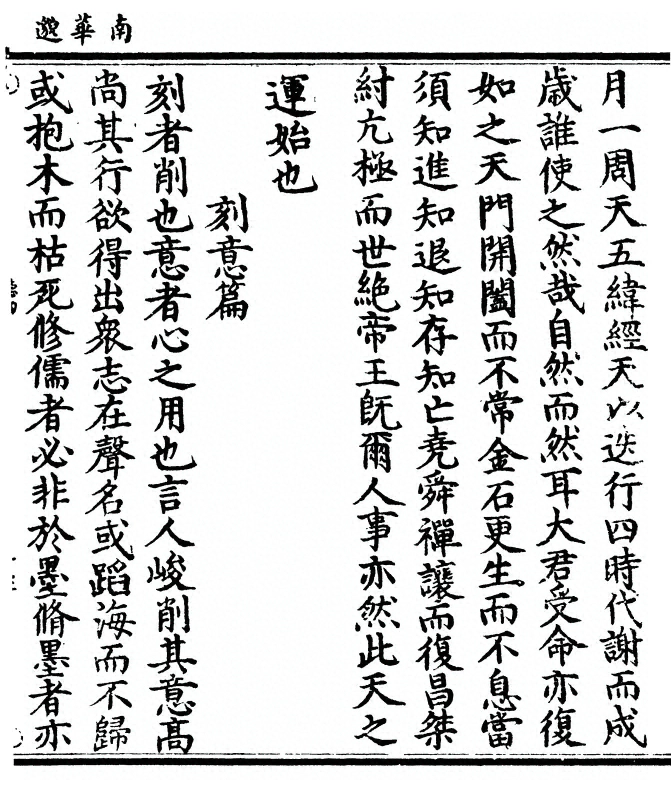 南華邈
月一周天五緯經天以迭行四時代謝而成
歳誰使之然哉自然而然耳大君受命亦復
如之天門開闔而不常金石更生而不息當
須知進知退知存知亡堯舜禪讓而復昌桀
紂亢極而世絶帝王旣爾人事亦然此天之
運始也
刻意篇
刻者削也意者心之用也言人峻削其意髙
尚其行欲得出衆志在聲名或蹈海而不歸
或抱木而枯死修儒者必非於墨脩墨者亦